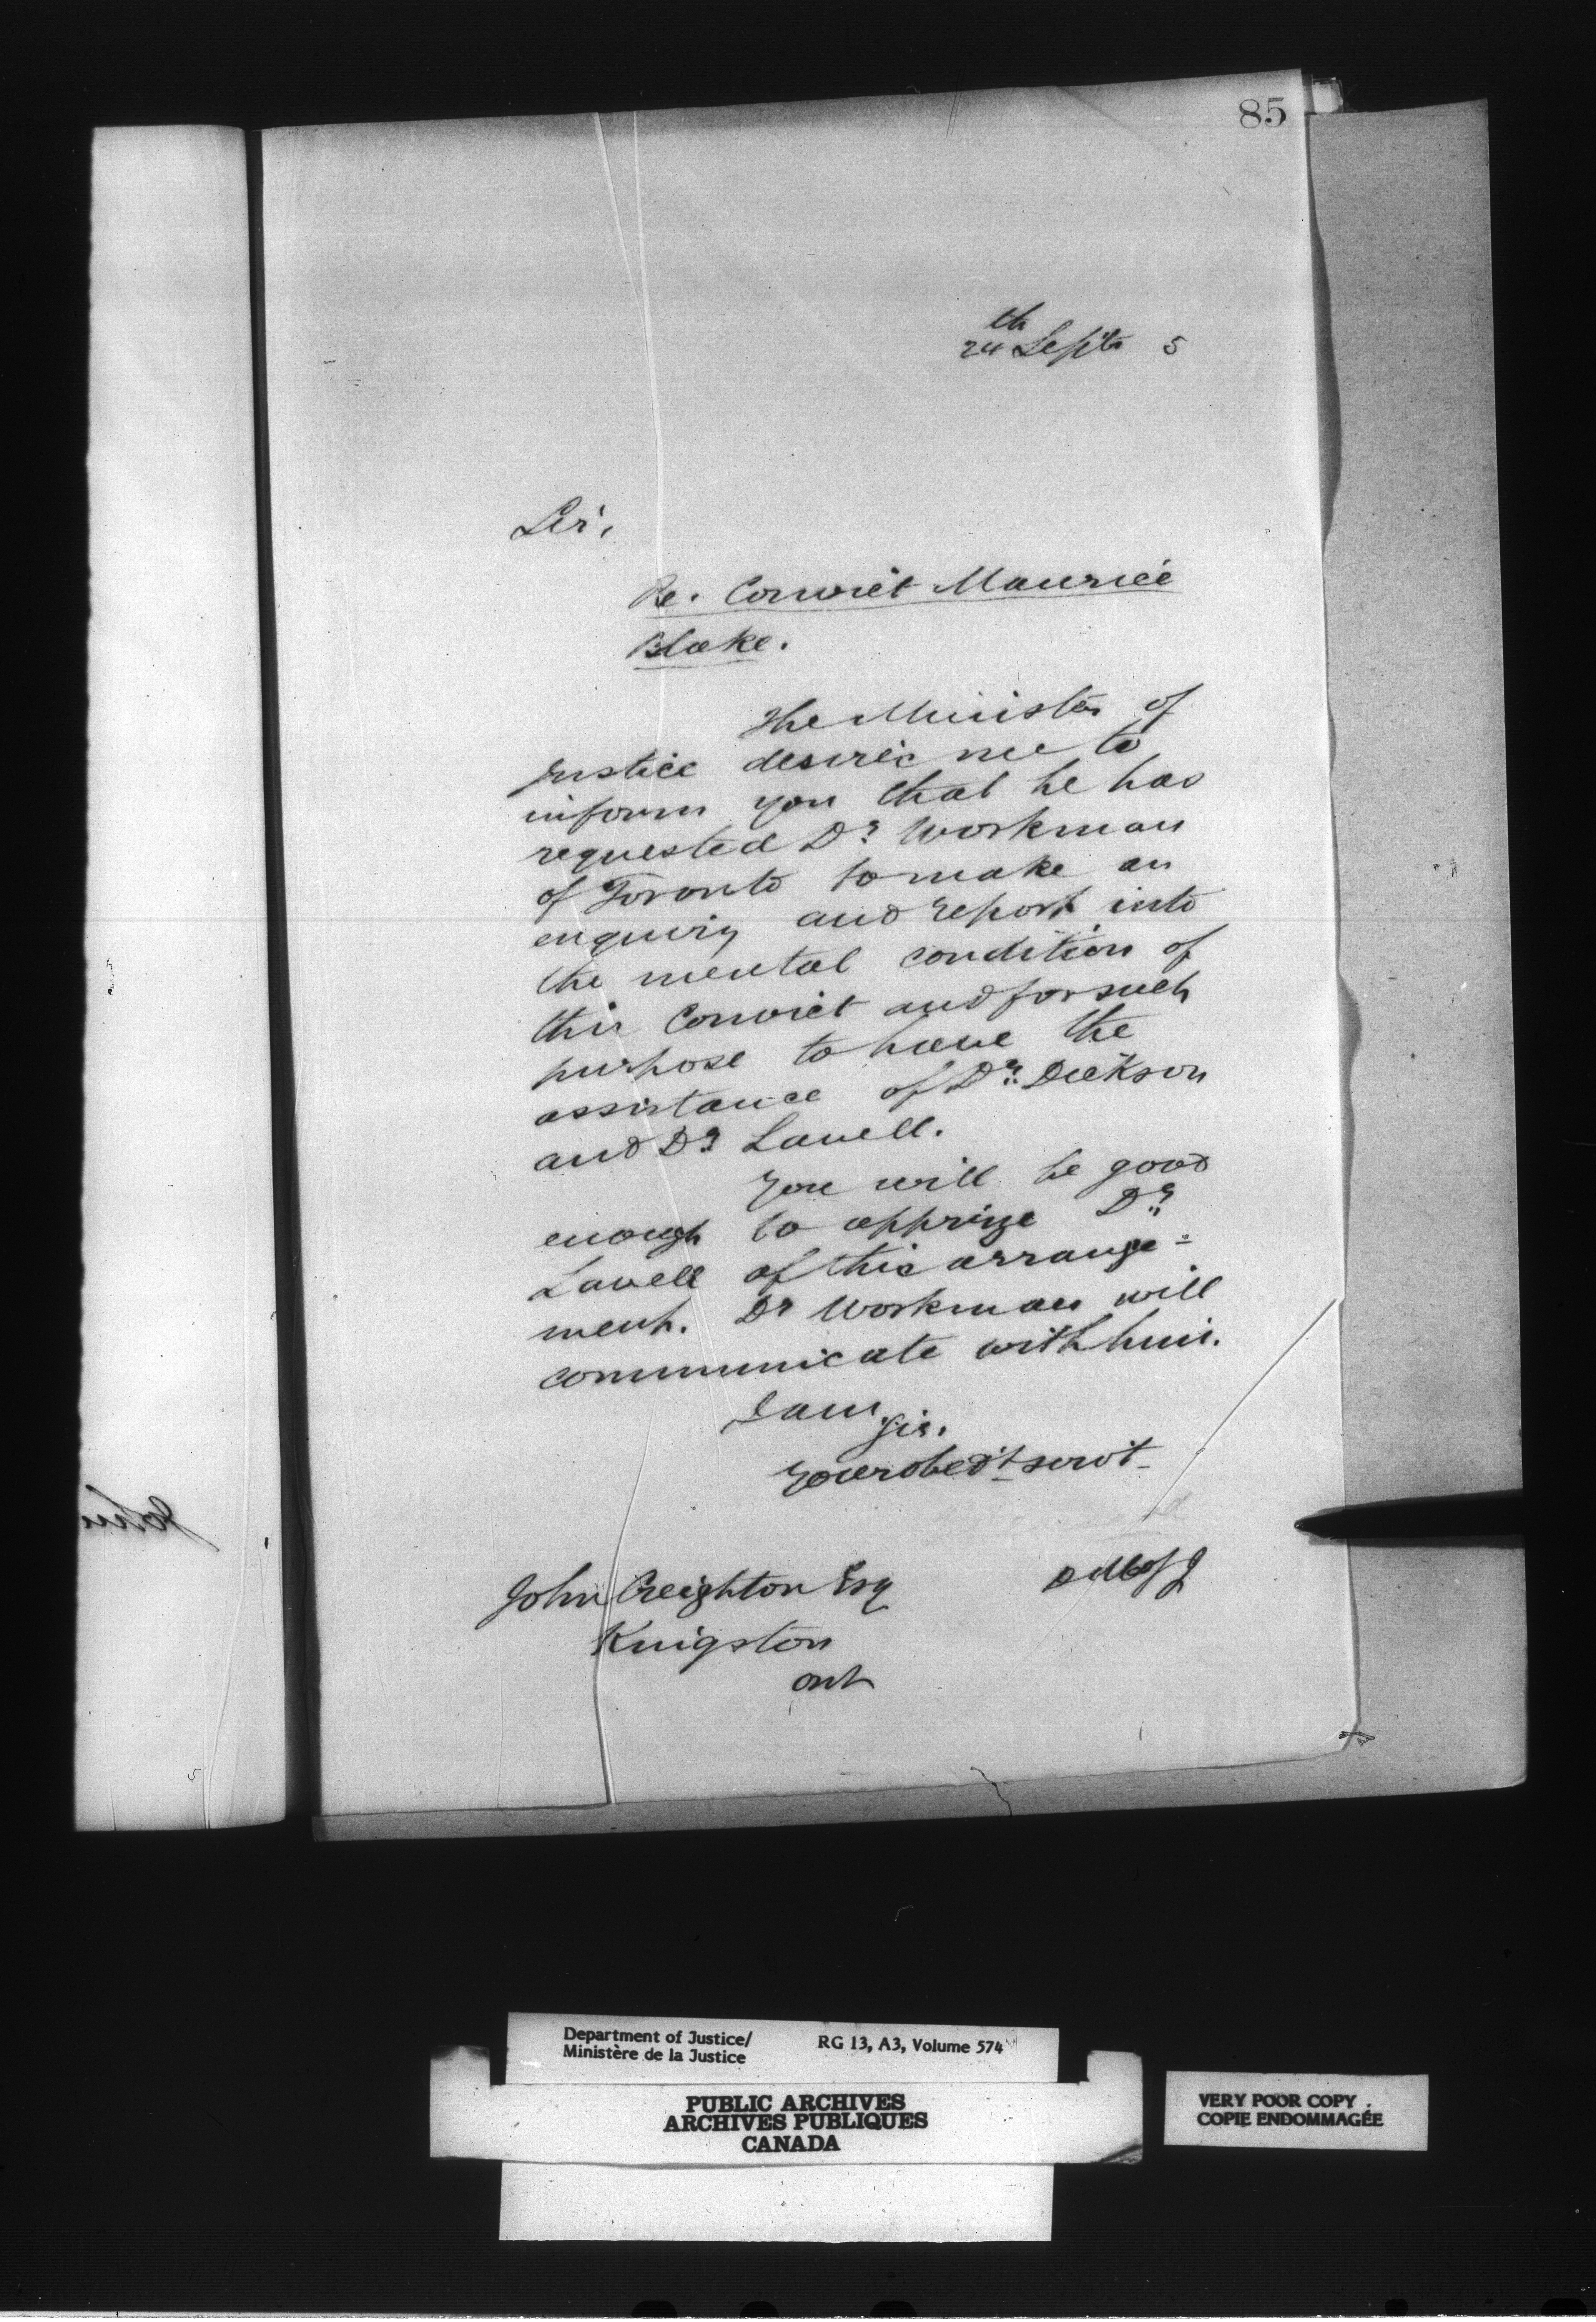 85
24th Septr 5
Sir,
Re. Convict Maurice
Blake.
The Minister of
Justice desires me to
inform you that he has
requested Dr. Workman
of Toronto to make an
enquiry and report into
the mental condition of
this Convict and for such
purpose to have the
assistance of Dr. Dickson
and Dr. Lavell.
You will be good
enough to apprize Dr.
Lavell of this arrange=
ment. Dr Workman will
communicate with him.
I am
Sir.
Your obed't servt
D M of J
John Creighton Esq
Kingston
Ont
John
Department of Justice/
Ministère de la Justice
RG 13, A3, Volume 574
PUBLIC ARCHIVES
ARCHIVES PUBLIQUES
CANADA
VERY POOR COPY
COPIE ENDOMMAGÉE